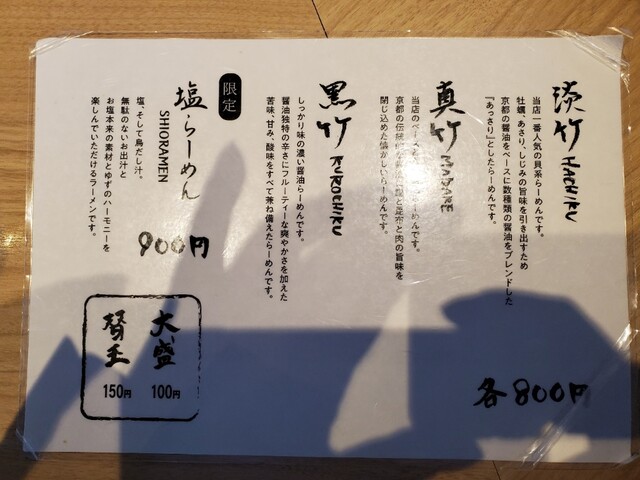 淡竹 HACHIKU
当店一番人気の貝系らーめんです。
牡蠣、あさり、しじみの旨味を引き出すため
京都の醤油をベースに数種類の醤油をブレンドした
「あっさり」としたらーめんです。
真竹 MADAKE
当店のベースを
らーめんです。
京都の伝統的な
と昆布と肉の旨味を
閉じ込めた懐かしいらーめんです。
黒竹 KUROCHIKU
しっかり味の濃い醤油らーめんです。
醤油独特の辛さにフルーティーな爽やかさを加えた
苦味、甘み、酸味をすべて兼ね備えたらーめんです。
各800円
限定
塩らーめん
SHIORAMEN
塩、そして鳥だし汁。
無駄のないお出汁と
お塩本来の素材とゆずのハーモニーを
楽しんでいただけるラーメンです。
900円
大盛
100円
替玉
150円